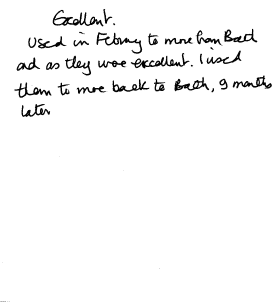 Excellent.
Used in Febuary to move from Bath
and as they were excellent. I used
them to move back to Bath, 9 months
later